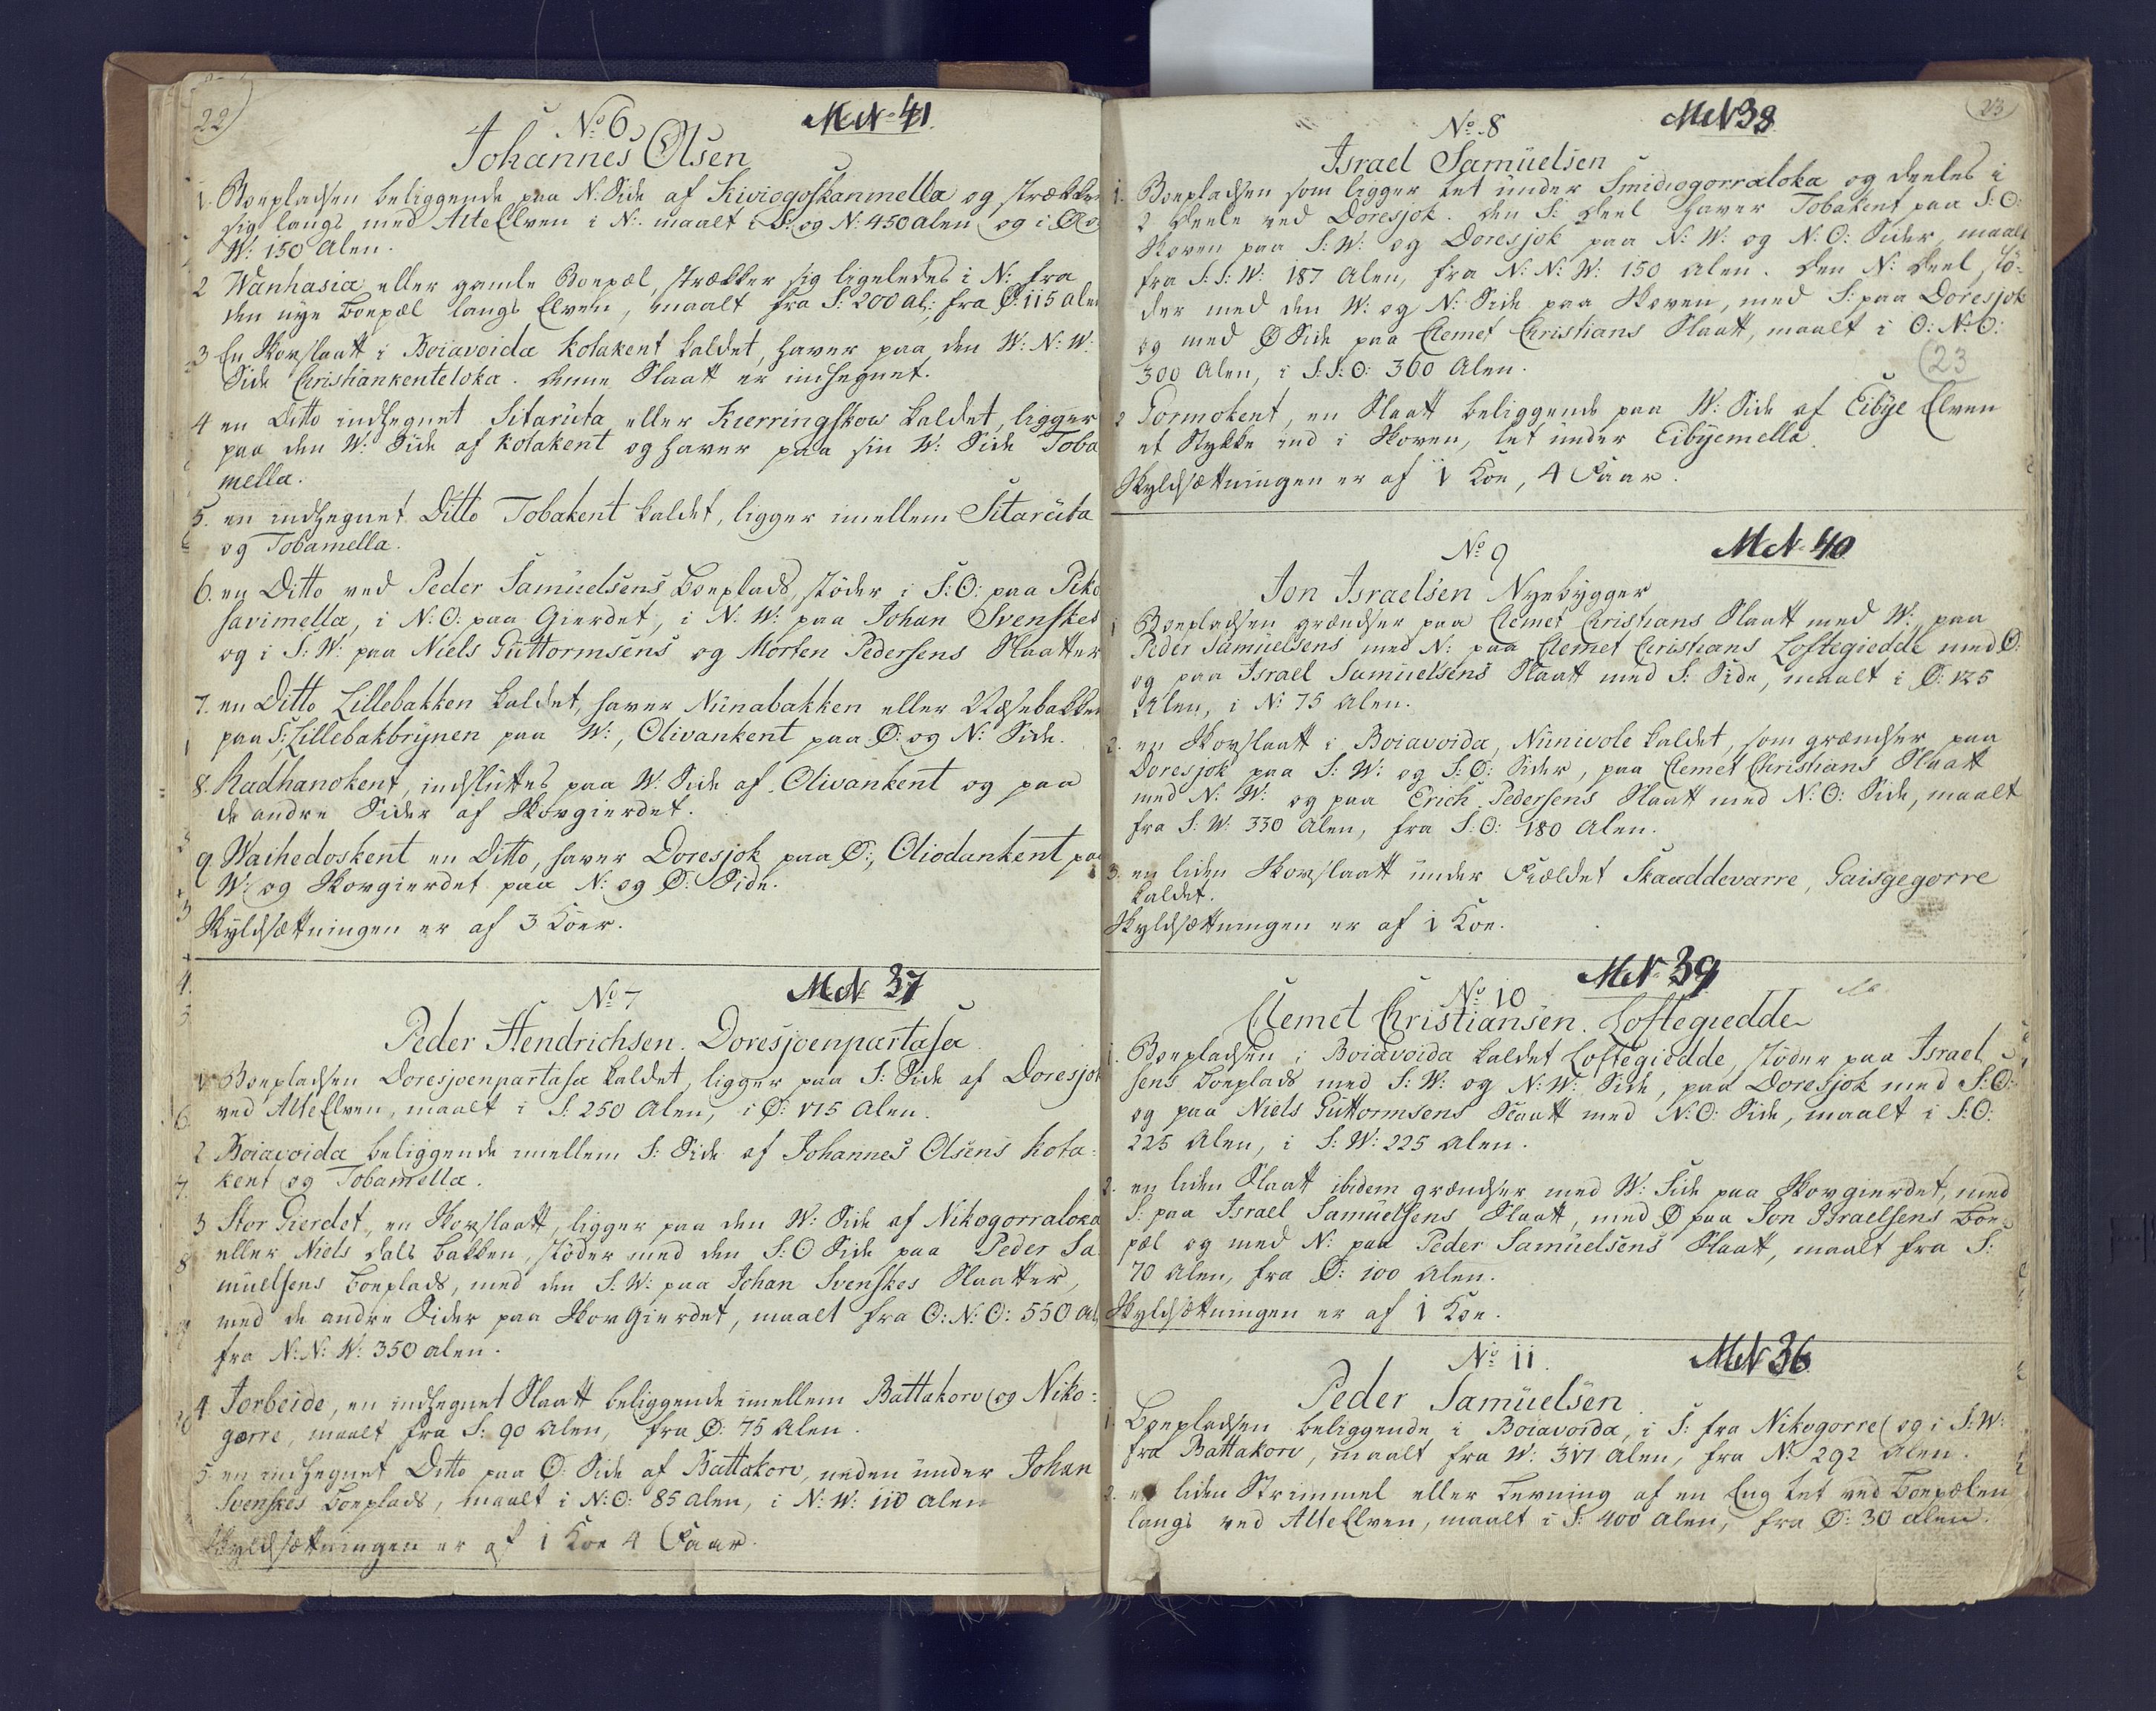 22
No 6
MN 41.
Johannes Olsen
1. Boepladsen beliggende paa N. Side af Kiviogoskanmella og strækker
sig langs med AlteElven i N: maalt i S: og N: 450 alen og i Ø og
W: 150 Alen.
2 Wanhasia eller gamle Boepæl, strækker sig ligeledes i N: fra
den nye Boepæl langs Elven, maalt fra S: 200 al:, fra Ø: 115 alen
3 En Skovslaatt i Boiavoida Kotakent kaldet, haver paa den W: N: W:
Side Christiankenteloka. Denne Slaatt er indhegnet.
4 en Ditto indhegnet Sitaruta eller Kierringskow kaldet, ligger
paa den W: Side af Kotakent og haver paa sin W: Side Toba
mella.
5. en indhegnet Ditto Tobakent kaldet, ligger imellem Sitaruta
og Tobamella.
6. en Ditto ved Peder Samüelsens Boeplads, støder i S: O: paa Piko
sarimella, i N: O: paa Gierdet, i N: W: paa Johan Svenskes
og i S: W: paa Niels Güttormsens og Morten Pedersens Slaatter
7. en Ditto Lillebakken kaldet, haver Nünabakken eller Næsebakken
paa S:, Lillebakbrÿnen paa W:, Olivankent paa Ø: og N: Side.
8. Radhanokent, indsluttes paa W: Side af Olivankent og paa
de andre Sider af Skovgierdet.
9 Waihedoskent en Ditto, haver Doresjok paa Ø:, Oliodankent paa
W: og Skovgierdet paa N: og Ø: Side.
Skyldsættningen er af 3 Koer.
No 7
MN 37
Peder Hendrichsen. Doresjoenpartasa
1. Boepladsen Doresjoenpartasa kaldet, ligger paa S: Side af Doresjok
ved AlteElven, maalt i S: 250 Alen, i Ø: 115 Alen.
2 Boiavoida beliggende imellem S: Side af Johannes Olsens Kota-
kent og Tobamella.
3 Stor Gierdet, en Skovslaatt, ligger paa den W: Side af Nikogorraloka
eller Niels dals bakken, støder med den S: O Side paa Peder Sa
müelsens Boeplads, med den S: W: paa Johan Svenskes Slaatter,
med de andre Sider paa SkovGierdet, maalt fra O: N: O: 550 Al:
fra N: N: W: 350 alen.
4 Jorbeide, en indhegnet Slaatt beliggende imellem Battakorv og Niko-
gorre, maalt fra S: 90 Alen, fra Ø: 75 Alen.
5. en indhegnet Ditto paa Ø: Side af Battakorv, neden ünder Johan
Svenskes Boeplads, maalt i N: O: 85 Alen, i N: W: 110 Alen
Skyldsættningen er af 1 Koe 4 Faar.
23
No 8
MN 38
Israel Samüelsen
1. Boepladsen som ligger tet ünder Smidiogorraloka og deeles i
2 Deele ved Doresjok. Den S: Deel haver Tobakent paa S: O:
Skoven paa S: W: og Doresjok paa N: W: og N: O: Sider, maalt
fra S: S: W: 187 Alen, fra N: N: W: 150 alen. Den N: Deel, stö-
der med den W: og N: Side paa Skoven, med S: paa Doresjok
og med Ø Side paa Clemet Christians Slaatt, maalt i O: N: O:
300 Alen, i S: S: O: 360 Alen.
23
2 Gormokent, en Slaatt beliggende paa W: Side af Eibÿe Elven
et Stykke ind i Skoven, tet ünder Eibÿemella.
Skyldsættningen er af 1 Koe, 4 Faar.
No 9
MN 40
Jon Israelsen Nyebygger
1 Boepladsen grændser paa Clemet Christians Slaatt med W:, paa
Peder Samüelsens med N: paa Clemet Christians Loftegiedde med Ø:
og paa Israel Samüelsens Slaatt med S: Side, maalt i Ø: 125
Alen, i N: 75 Alen.
2. en Skovslaatt i Boiavoida, Nünivole kaldet, som grændser paa
Doresjok paa S: W: og S: O: Sider, paa Clemet Christians Slaatt
med N: W: og paa Erich Pedersens Slaatt med N: O: Side, maalt
fra S: W: 330 Alen, fra S: O: 180 Alen.
3. en liden Skovslaatt ünder Fieldet Skaaddevarre, Gaisgegorre
kaldet.
Skyldsættningen er af 1 Koe.
No 10
MN 39
Clemet Christiansen. Loftegiedde
1. Boepladsen i Boiavoida kaldet Loftegiedde, støder paa Israel S
sens Boeplads med S: W: og N: W: Side, paa Doresjok med S: O:
og paa Niels Güttormsens Slaatt med N: O: Side, maalt i S: O:
225 Alen, i S: W: 225 Alen.
2. en liden Slaatt ibidem grændser med W: Side paa Skovgierdet, med
S: paa Israel Samüelsens Slaatt, med Ø paa Jon Israelsens Boe-
pæl og med N: paa Peder Samüelsens Slaatt, maalt fra S:
70 Alen, fra Ø: 100 Alen.
Skyldsættningen er af 1 Koe.
No 11.
MN 36
Peder Samüelsen.
1. Boepladsen beliggende i Boiavoida, i S: fra Nikogorre og i S: W:
fra Battakorv, maalt fra W: 311 Alen, fra N: 292 Alen.
2. en liden Strimmel eller Levning af en Eng tet ved Boepælen
langs ved AlteElven, maalt i S: 400 Alen, fra Ø: 30 alen.